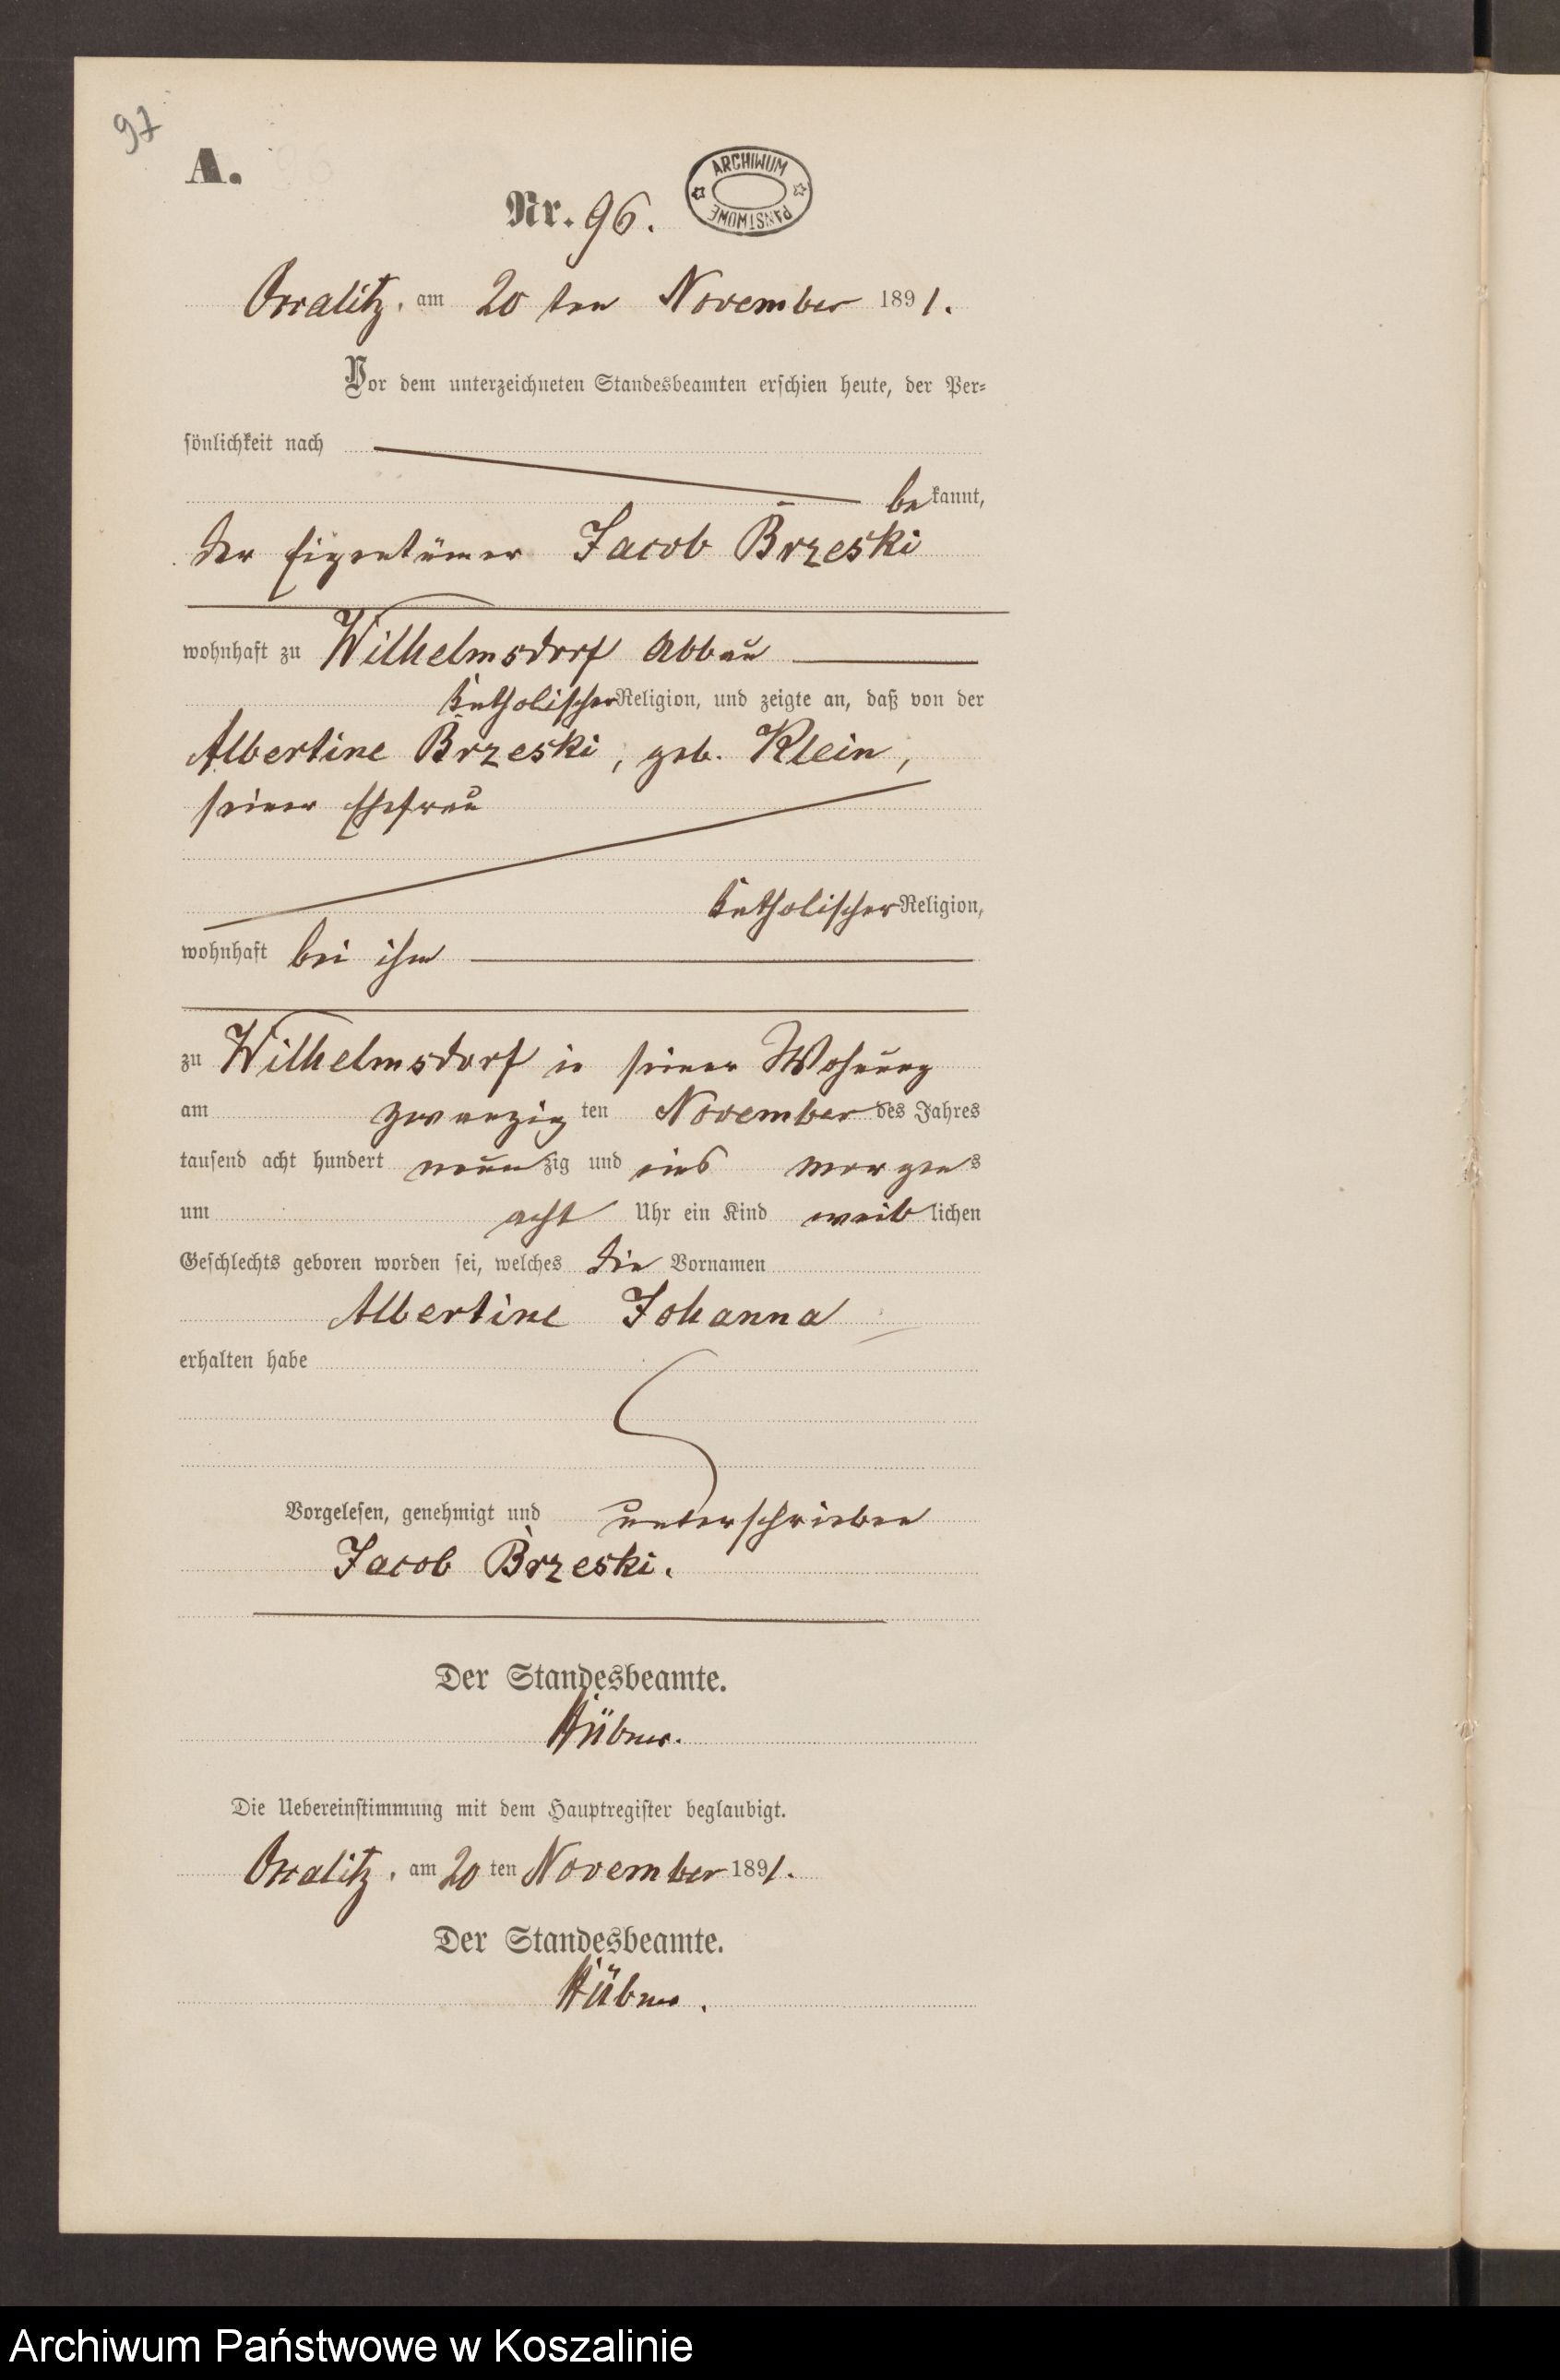 97
A.
Nr. 96.
ARCHIWUM PAŃSTWOWE
Ossalitz, am 20 ten November 1891.
Vor dem unterzeichneten Standesbeamten erschien heute, der Per=
sönlichkeit nach
bekannt,
der Eigentümer Jacob Brzeski
wohnhaft zu Wilhelmsdorf Abbau
katholischer Religion, und zeigte an, daß von der
Albertine Brzeski, geb. Klein,
seiner Ehefrau
katholischer Religion,
wohnhaft bei ihm
zu Wilhelmsdorf in seiner Wohnung
am zwanzigten November des Jahres
tausend acht hundert neunzig und eins morgens
um acht Uhr ein Kind weiblichen
Geschlechts geboren worden sei, welches die Vornamen
Albertine Johanna
erhalten habe
Vorgelesen, genehmigt und unterschrieben
Jacob Brzeski.
Der Standesbeamte.
Hübner.
Die Uebereinstimmung mit dem Hauptregister beglaubigt.
Ossalitz, am 20 ten November 1891.
Der Standesbeamte.
Hübner.
Archiwum Państwowe w Koszalinie